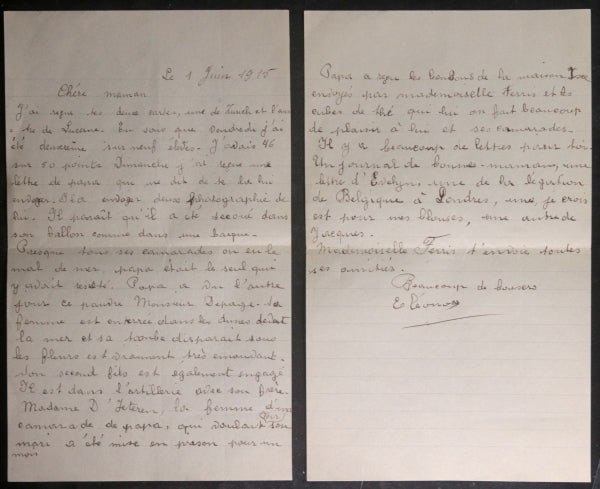 Le 1 Juin 1915
Chére maman
J'ai reçue tes deux cartes, une de Zurich et l'au
tre de Lucerne. Tu sais que vendredi j'ai
été deuxième sur neuf élèves. J'avais 46
sur 50 points. Dimanche j'ai reçue une
lettre de papa qui me dit de te la
envoyer. Il a envoyer deux photographie de
lui. Il paraît qu'il a été secoué dans
son ballon comme dans une barque.
Presque tous ses camarades on eu le
mal de mer, papa était le seul qui
y avait resisté. Papa a vu l'autre
jour ce pauvre Monsieur Depage. Sa
femme est enterrée dans les dunes devant
la mer et sa tombe disparait sous
les fleurs est vraiment très émouvant.
Son second fils est egalement engagé
Il est dans l'artillerie avec son frère.
Madame D'Ieteren, la femme d'un
camarade de papa, qui voulant son
mari a été mise en prison pour un
mois
Papa a reçu les bonbons de la maison
envoyés par mademoiselle Ferris et les
cubes de thé qui lui on fait beaucoup
de plaisir à lui et ses camarades.
Il y a beaucoup de lettres pour toi.
Un journal de bonne-maman, une
lettre d'Evelyn, une de la légation
de Belgique à Londres, une je crois
est pour mes blouses, une autre de
Jacques.
Mademoiselle Ferris t'envoie toutes
ses amitiés.
Beaucoup de baisers
Eléonore